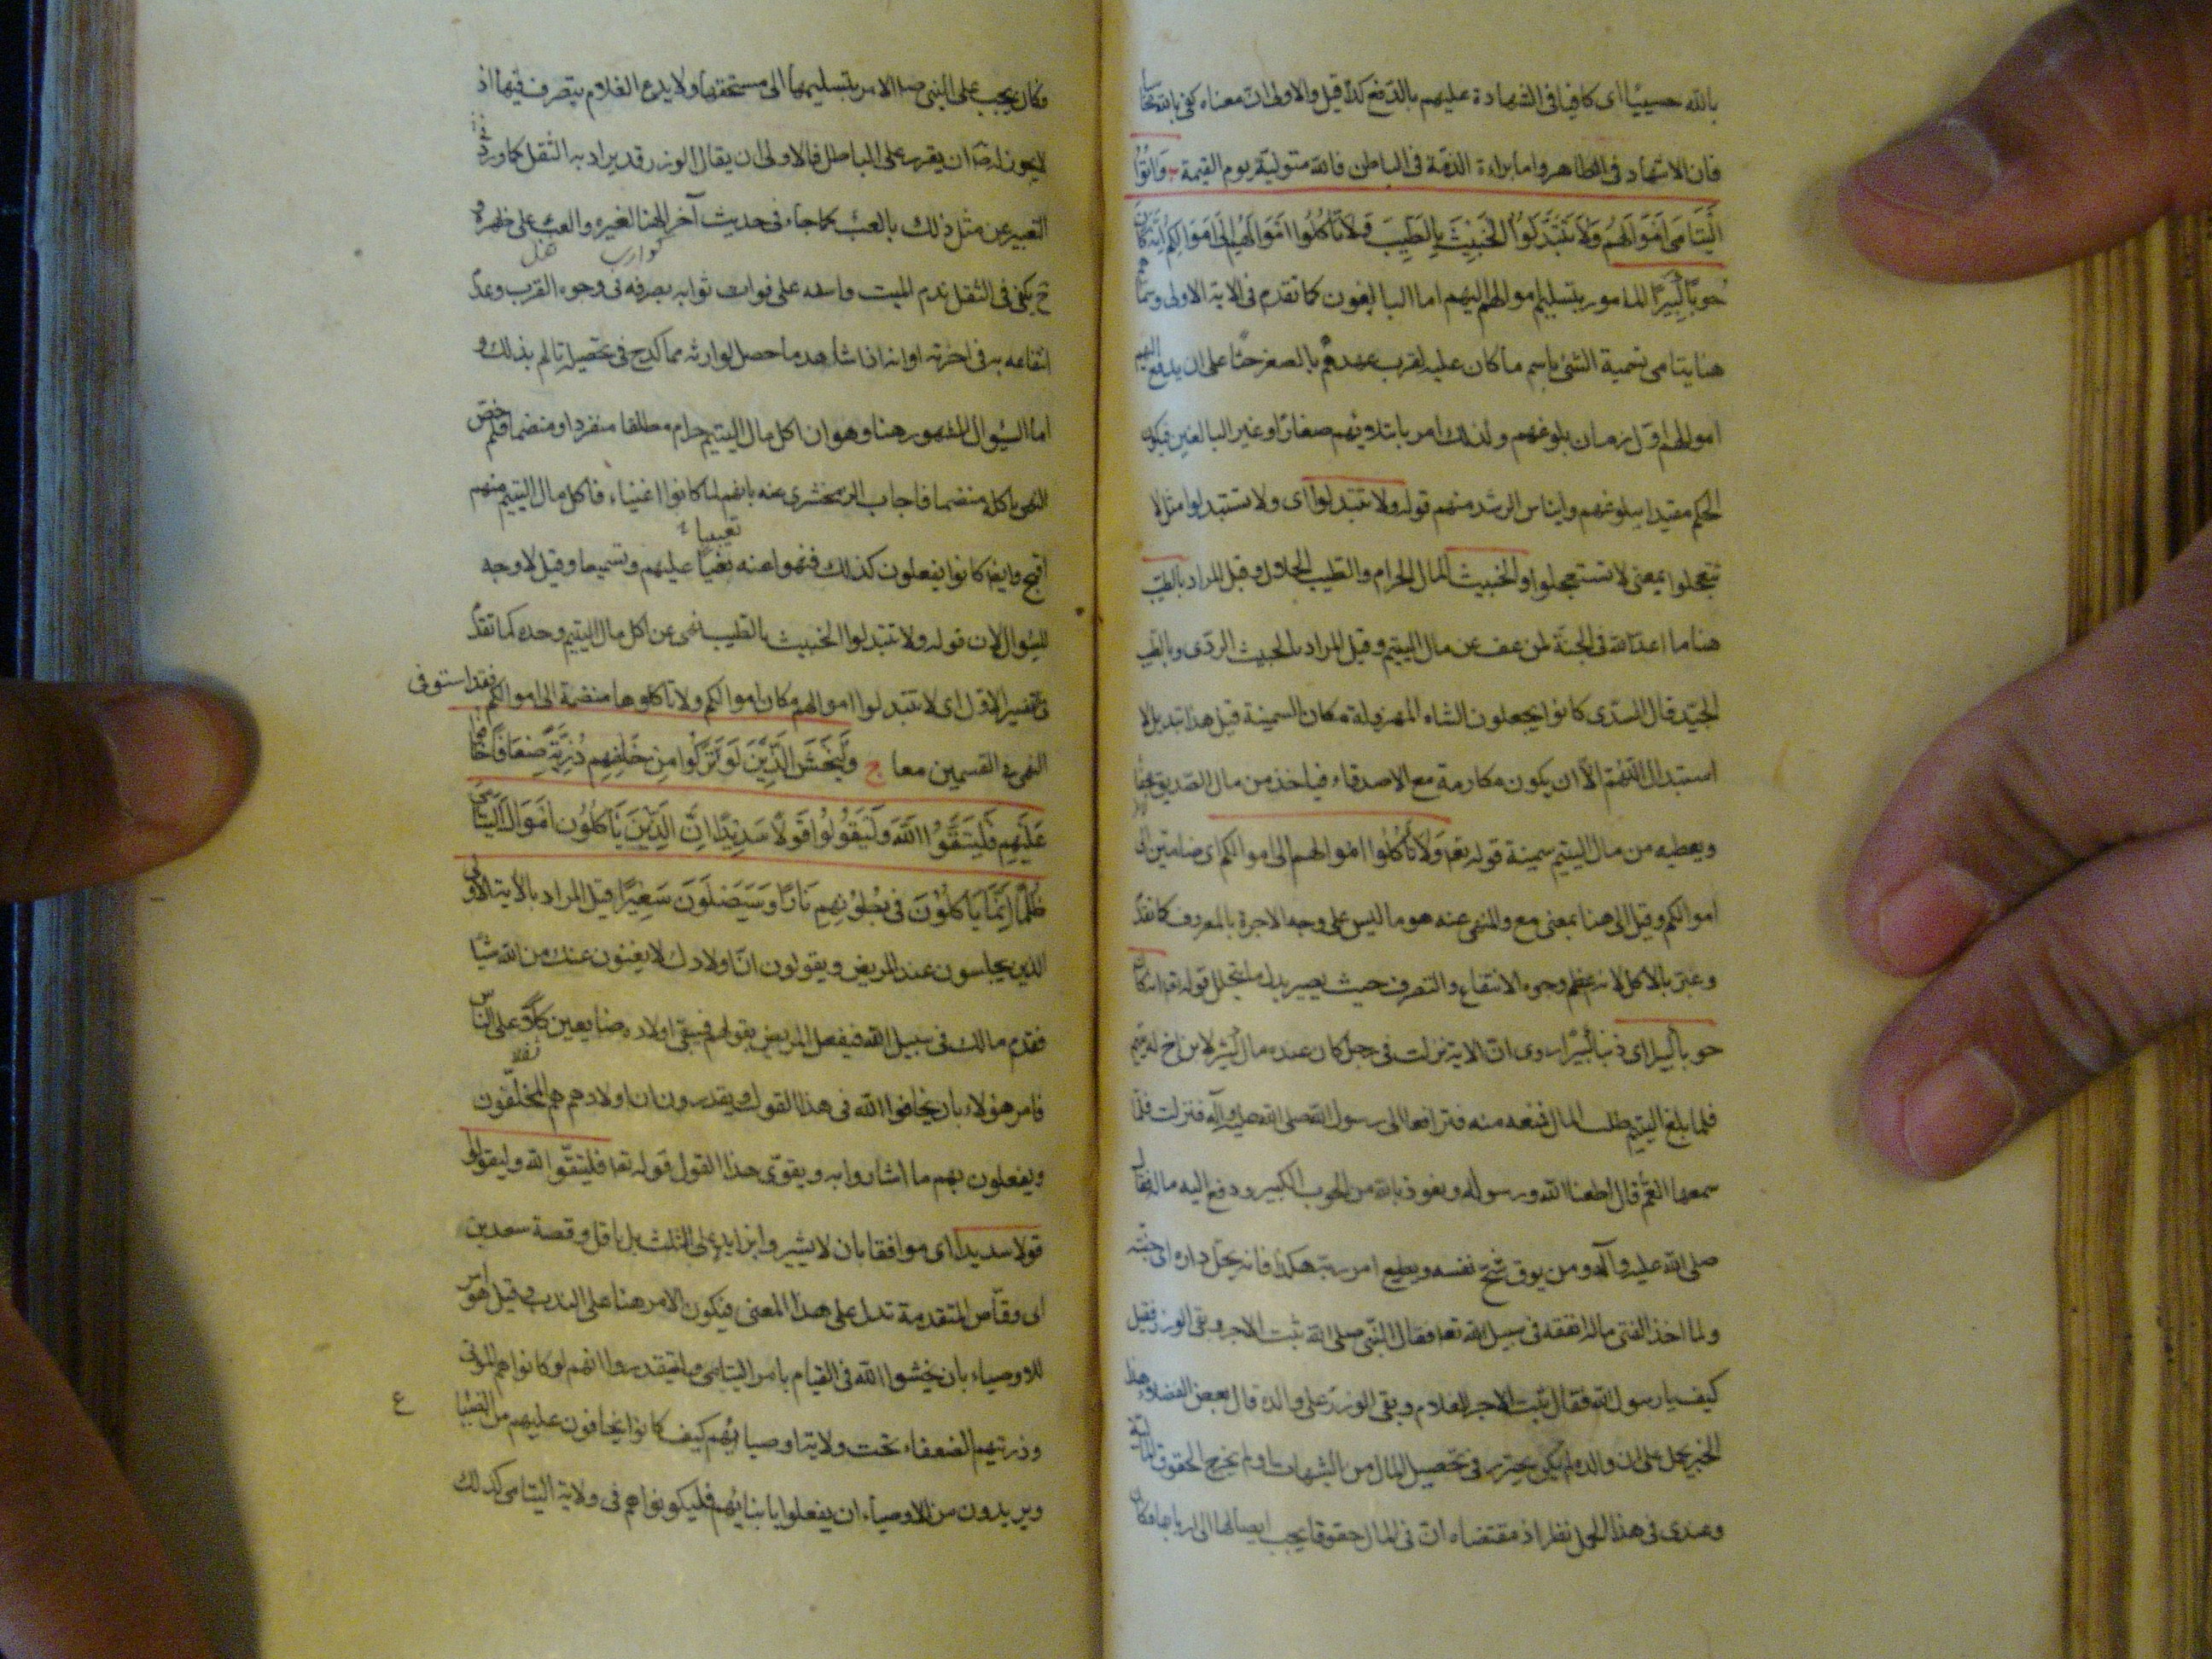 بالله حسيبًا اى كافيا فى الشهادة عليهم بالدفع كذا قيل والاولى ان معناه كفى بالله محاسبا
فان الاشهاد فى الظاهر واما براءة الذمة فى الباطن فالله متوليه يوم القيمة ب وَاٰتُوا
الْيَتَامَى اَمْوَالَهُمْ وَلَا تَتَبَدَّلُوا الْخَبِيثَ بِالطَّيِّبِ وَلَا تَأْكُلُوا اَمْوَالَهُمْ اِلَى اَمْوَالِكُمْ اِنَّهُ كَانَ
حُوبًا كَبِيرًا المامور بتسليم اموالهم اليهم اما البالغون كما تقدم فى الاية الاولى وسماهم
هنا يتامى تسمية الشئ باسم ما كان عليه لقرب عهدهم بالصغر حثا على ان يدفع اليهم
اموالهم اول زمان بلوغهم ولذلك امر بابتلائهم صغارًا او غير البالغين فيكون
الحكم مقيدا ببلوغهم وايناس الرشد منهم قوله ولا تتبدلوا اى ولا تستبدلوا مثل لا
تتعجلوا بمعنى لا تستعجلوا والخبيث المال الحرام والطيب الحلال وقيل المراد بالطيب
هنا ما اعد الله فى الجنة لمن عف عن مال اليتيم وقيل المراد بالخبيث الردى وبالطيب
الجيّد قال السدّى كانوا يجعلون الشاه المهزولة مكان السمينة قيل هذا تبديل لا
استبدال اللّهم الّا ان يكون مكارمة مع الاصدقاء فياخذ من مال الصديق عجفا
ويعطيه من مال اليتيم سمينة قوله تعا وَلَا تَأْكُلُوا اموالهم الى اموالكم اى ضامين الى
اموالكم وقيل الى هنا بمعنى مع والمنهى عنه هو ما ليس على وجه الاجرة بالمعروف كما تقدّ
وعبّر بالاكل لانه اعظم وجوه الانتفاع والتصرف حيث يصير بدل ما يتحلل قوله تعا انه كان
حوبا كبيرا اى ذنبا كبيرًا روى انّ الاية نزلت فى رجل كان عنده مال كثير لابن اخ له يتيم
فلما بلغ اليتيم طلب المال فمنعه منه فترافعا الى رسول الله صلى الله عليه وآله فنزلت فلمّا
سمعها العمّ قال اطعنا الله ورسوله ونعوذ بالله من الحوب الكبير ودفع اليه ماله فقال
صلى الله عليه وآله ومن يوق شح نفسه ويطع امر ربّه هكذا فانه يحلّ داره اى جنته
ولما اخذ الفتى ماله انفقه فى سبيل الله تعا فقال النّبى صلى الله ثبت الاجر وبقى الوزر فقيل
كيف يا رسول الله فقال ثبت الاجر للغلام وبقى الوزر على والده قال بعض الفضلاء هذا
الخبر يحمل على ان والده لم يكن يحترز فى تحصيل المال من الشبهات او لم يخرج الحقوق المالية
وعندى فى هذا الحمل نظر اذ مقتضاه انّ فى المال حقوقا يجب ايصالها الى اربابها فكان
فكان يجب على النبى ص الامر بتسليمها الى مستحقها ولا يدع الغلام يتصرف فيها اذ
لا يجوز له ان يقرر على الباطل فالاولى ان يقال الوزر قد يراد به الثقل كما ورد فى
التعبير عن مثل ذلك بالعبْ كما جاء فى حديث آخر المهنا لغيره والعبْ على ظهره و
ح يكفى فى الثقل ندم الميت واسفه على فوات ثوابه بصرفه فى وجوه القرب وعد
انتفاعه به فى آخرته او انه اذا شاهد ما حصل لوارثه مما كدح فى تحصيله تالم بذلك و
اما السؤال المشهور هنا وهو ان اكل مال اليتيم حرام مطلقا منفردا ومنضما فلم خصّ
النهى باكله منضما فاجاب الزمخشرى عنه بانهم لما كانوا اغنياء فاكل مال اليتيم منهم
اقبح وايضا كانوا يفعلون كذلك فنهوا عنه نعيًا عليهم وتسميعا وقيل لا وجه
للسؤال لان قوله ولا تتبدلوا الخبيث بالطيب نهى عن اكل مال اليتيم وحده كما تقدّ
فى تفسير الاول اى لا تتبدلوا اموالهم مكان اموالكم ولا تاكلوها منضمة الى اموالكم فقد استوفى
النهى فى القسمين معا ج وَلْيَخْشَ الَّذِينَ لَوْ تَرَكُوا مِنْ خَلْفِهِمْ ذُرِّيَّةً ضِعَافًا خَافُوا
عَلَيْهِمْ فَلْيَتَّقُوا اللَّهَ وَلْيَقُولُوا قَوْلًا سَدِيدًا اِنَّ الَّذِينَ يَأْكُلُونَ اَمْوَالَ الْيَتَامَى
ظُلْمًا اِنَّمَا يَأْكُلُونَ فِى بُطُونِهِمْ نَارًا وَسَيَصْلَوْنَ سَعِيرًا قيل المراد بالاية الاولى
الذين يجلسون عند المريض ويقولون انّ اولادك لا يغنون عنك من الله شيئًا
فقدم مالك فى سبيل الله فيفعل المريض بقولهم فيبقى اولاده ضايعين كلًّا على الناس
ثقلا
فامر هؤلاء بان يخافوا الله فى هذا القول ويقدرون ان اولادهم هم المخلّفون
ويفعلون بهم ما اشاروا به ويقوّى هذا القول قوله تعا فليتّقوا الله وليقولوا
قولا سديدا اى موافقا بان لا يشيروا بزايد على الثلث بل باقل وقصة سعد بن
ابى وقّاص المتقدمة تدل على هذا المعنى فيكون الامر هنا على الندب وقيل هو امر
للاوصياء بان يخشوا الله فى القيام بامر اليتامى وليقدروا انهم لو كانوا هم الموتى
وذريتهم الضعفاء تحت ولاية اوصيائهم كيف كانوا يخافون عليهم من الضياع
ويريدون من الاوصياء ان يفعلوا بابنائهم فليكونوا هم فى ولاية اليتامى كذلك